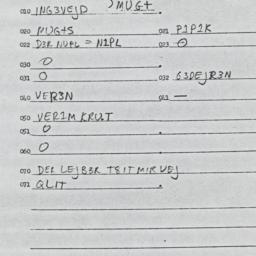 010 INGƎVEJD ƆMUG+.
020 MUG+S 021 P1P1K
022 DƎR NUPL = N1PL 023 O
030 O
031 O 032 GƎDEJRƎN
040 VERƎN 041 —
050 VER1M KRUT
051 O
060 O
070 DER LEJBƎR T8IT MIR VEJ
071 QLIT